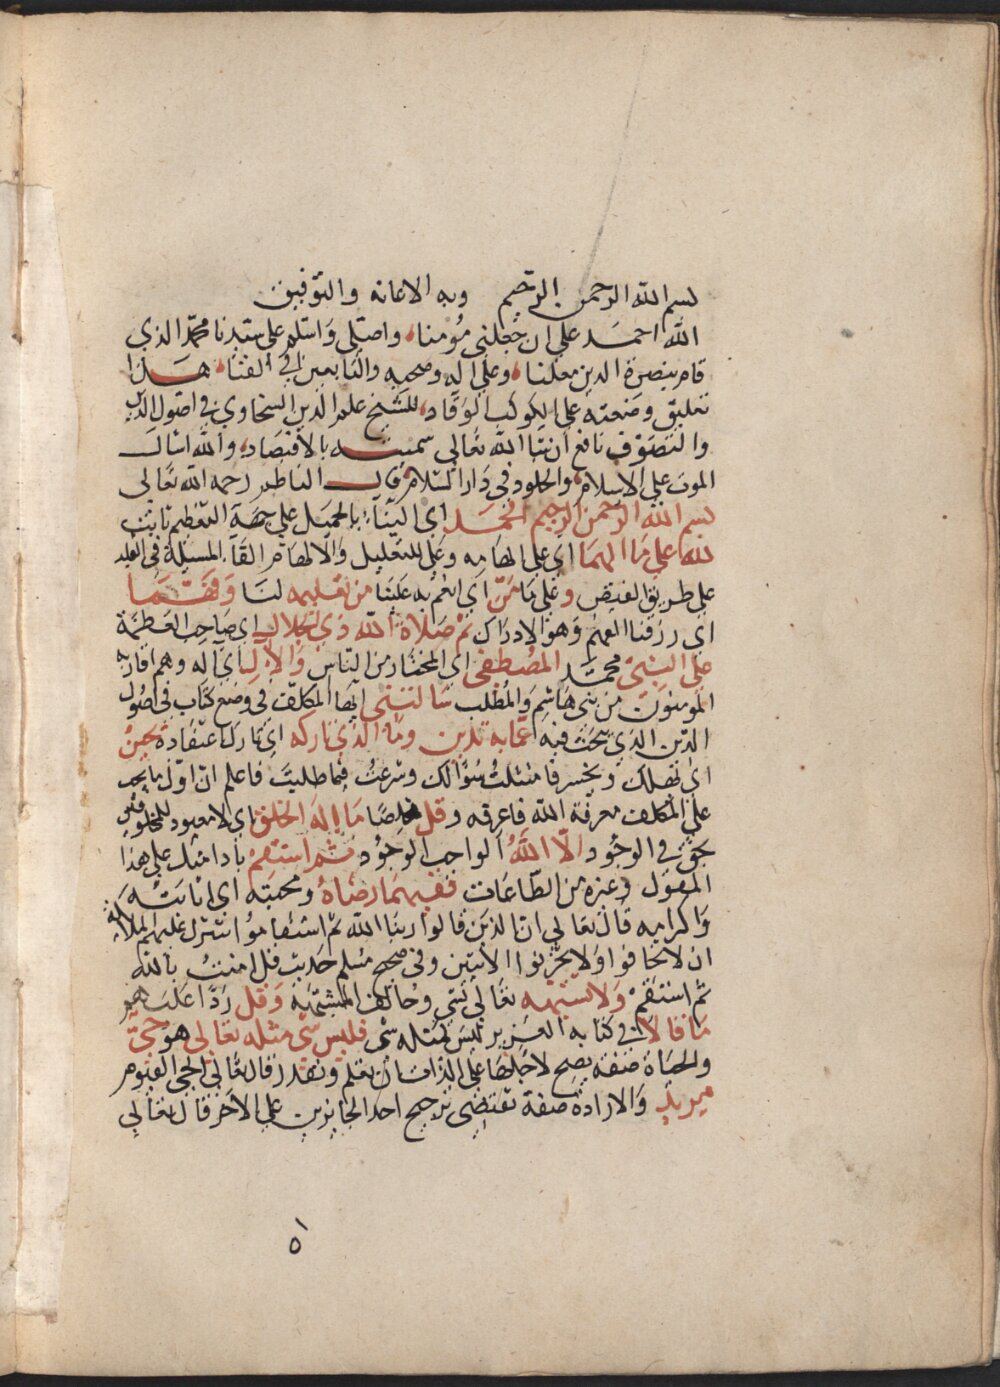 بسم الله الرحمن الرحيم وبه الاعانه والتوفيق
الله احمد على ان جعلني مؤمنا واصلي واسلم على سيدنا محمد الذي
قام بنصرة الدين معلنا وعلى اله وصحبه والتابعين الى الفنا هذا
تعليق وضعته على الكوكب الوقاد للشيخ علم الدين السخاوي في اصول الدين
والتصوف نافع ان شا الله تعالى سميته بالاقتصاد والله اسال
الموت على الاسلام والخلود في دار السلام قال الناظم رحمه الله تعالى
بسم الله الرحمن الرحيم الحمد اي الثناء بالجميل على جهة التعظيم ثابت
لله على ما الهما اي على الهامه وعلى للتعليل والالهام القا المسيلة في القلب
على طريق الفيض وعلى ما من اي انعم به علينا من تعليمه لنا وفهما
اي رزقنا الفهم وهو الادراك ثم صلاة الله ذي الجلال اي صاحب العظمة
على النبي محمد المصطفى اي المختار من الناس والال اي اله وهم اقاربه
المومنون من بني هاشم والمطلب سالتني ايها المكلف في وضع كتاب في اصول
الدين الذي يبحث فيه عما به تدين وما الذي تاركه اي تارك اعتقاده يحين
اي يهلك ويخسر فامتثلت سؤالك وشرعت فيما طلبت فاعلم ان اول ما يجب
على المكلف معرفة الله فاعرفه وقل مخلصا ما اله الخلق اي لا معبود للمخلوقين
بحق في الوجود الا الله الواجب الوجود ثم استقم بان دامتك على هذا
المقول وغيره من الطاعات ففيهما رضاه ومحبته اي اثابته
واكرامه قال تعالى ان الذين قالوا ربنا الله ثم استقاموا تتنزل عليهم الملائكة
ان لا تخافوا ولا تحزنوا الايتين وفي صحيح مسلم حديث قل امنت بالله
ثم استقم ولا تشبهه تعالى بشي وخالف المشبهة وقل ردا عليهم
ما قال في كتابه العزيز ليس كمثله شي فليس شي مثله تعالى هو حي
والحياة صفة يصح لاجلها على الذات ان تعلم وتقدر قال تعالى الحي القيوم
مريد والارادة صفة تقتضي ترجيح احد الجايزين على الاخر قال تعالى